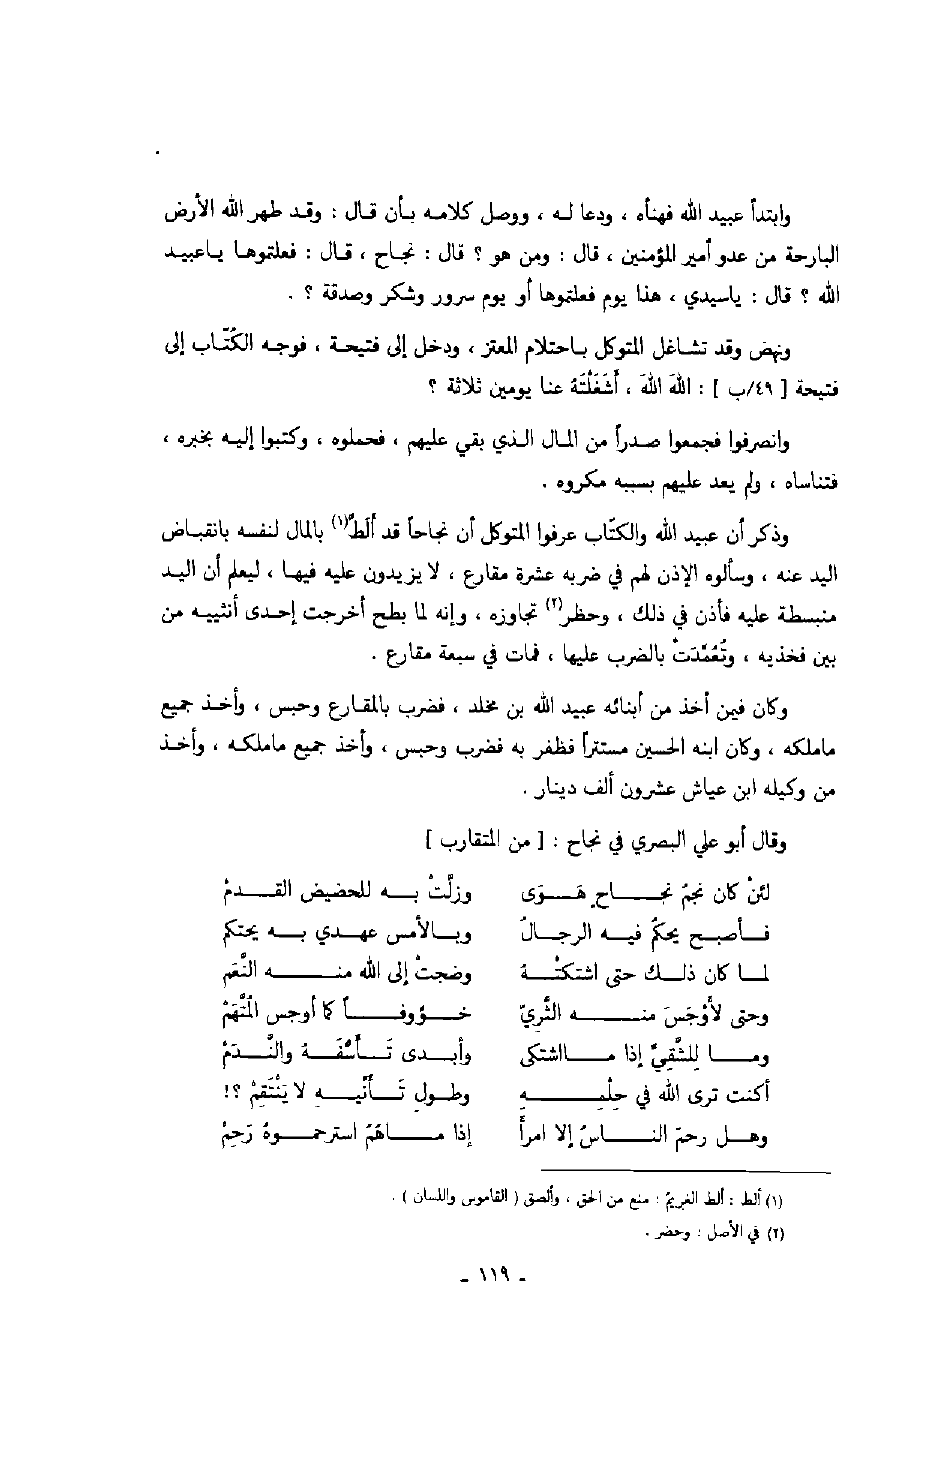 وابتدأ عبيد الله فهنأه ، ودعا لـه ، ووصل كلامه بأن قال : وقد طهر الله الأرض
البارحة من عدو أمير المؤمنين ، قال : ومن هو ؟ قال : نجاح ، قال : فعلتموها ياعبيد
الله ؟ قال : ياسيدي ، هذا يوم فعلتموها أو يوم سرور وشكر وصدقة ؟ .
ونهض وقد تشاغل المتوكل باحتلام المعتز ، ودخل إلى فتيحة ، فوجه الكُتّاب إلى
فتيحة [ ٤٩/ب ] : اللهَ اللهَ ، أشغَلْتَهُ عنا يومين ثلاثة ؟
وانصرفوا فجمعوا صدراً من المال الذي بقي عليهم ، فحملوه ، وكتبوا إليه بخبره ،
فتناساه ، ولم يعد عليهم بسببه مكروه .
وذكر أن عبيد الله والكتّاب عرفوا المتوكل أن نجاحاً قد ألَطّ(١) بالمال لنفسه بانقباض
اليد عنه ، وسألوه الإذن لهم في ضربه عشرة مقارع ، لا يزيدون عليه فيها ، ليعلم أن اليد
منبسطة عليه فأذن في ذلك ، وحظر(٢) تجاوزه ، وإنه لما بطح أخرجت إحدى أنثييه من
بين فخذيه ، وتُعُمِّدَتْ بالضرب عليها ، فمات في سبعة مقارع .
وكان فيمن أخذ من أبنائه عبيد الله بن مخلد ، فضرب بالمقارع وحبس ، وأخذ جميع
ماملكه ، وكان ابنه الحسين مستتراً فظفر به فضرب وحبس ، وأخذ جميع ماملكه ، وأخذ
من وكيله ابن عياش عشرون ألف دينار .
وقال أبو علي البصري في نجاح : [ من المتقارب ]
لئنْ كان نجمُ نجاحٍ هَوَى وزلَّتْ به للحضيض القدمْ
فأصبح يحكمُ فيه الرجالُ وبالأمس عهدي به يحتكم
لما كان ذلك حتى اشتكتْهُ وضجتْ إلى الله منه النَّعَم
وحتى لأوْجَسَ منه الثَّرِيّ خؤوفاً كما أوجس المُتَّهَمْ
وما للشَّقِيِّ إذا مااشتكى وأبدى تأسُّفَهُ والنَّدَمْ
أكنت ترى الله في حِلْمِهِ وطول تأنّيهِ لا يَنْتَقِمْ ؟!
وهل رحمَ الناسُ إلا امرأً إذا ماهُمُ استرحموهُ رَحِمْ
(١) ألط : ألط الغريمُ : منع من الحق ، وألصق ( القاموس واللسان ) .
(٢) في الأصل : وحضر .
- ١١٩ -